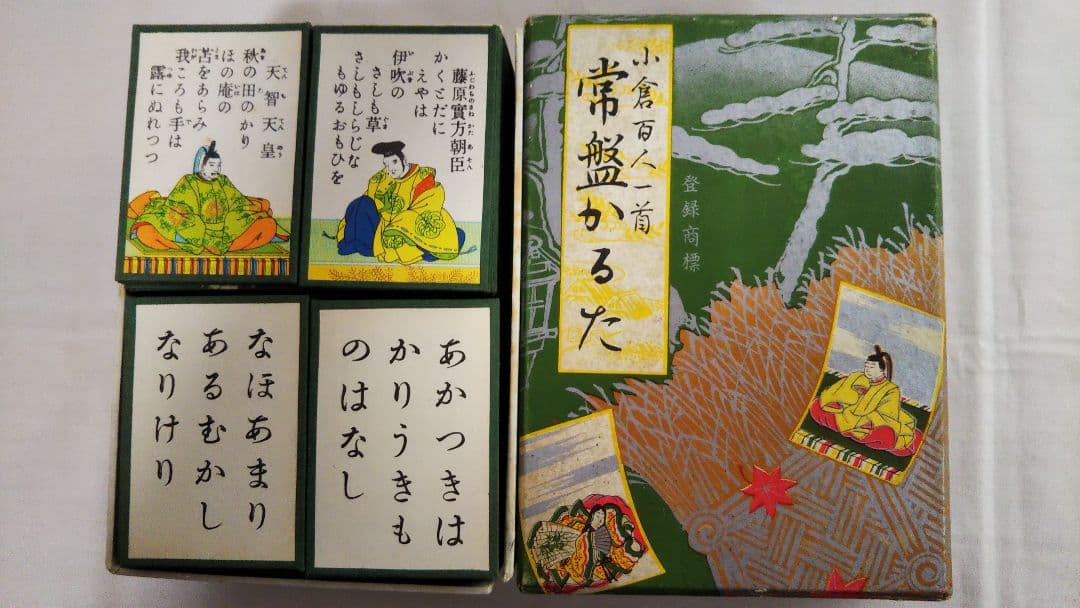 天智天皇
秋の田のかり
ほの庵の
苫をあらみ
我ころも手は
露にぬれつつ
藤原實方朝臣
かくとだに
えやは
伊吹の
さしも草
さしもしらじな
もゆるおもひを
なほあまり
あるむかし
なりけり
あかつきは
かりうきも
のはなし
小倉百人一首
常盤かるた
登録商標